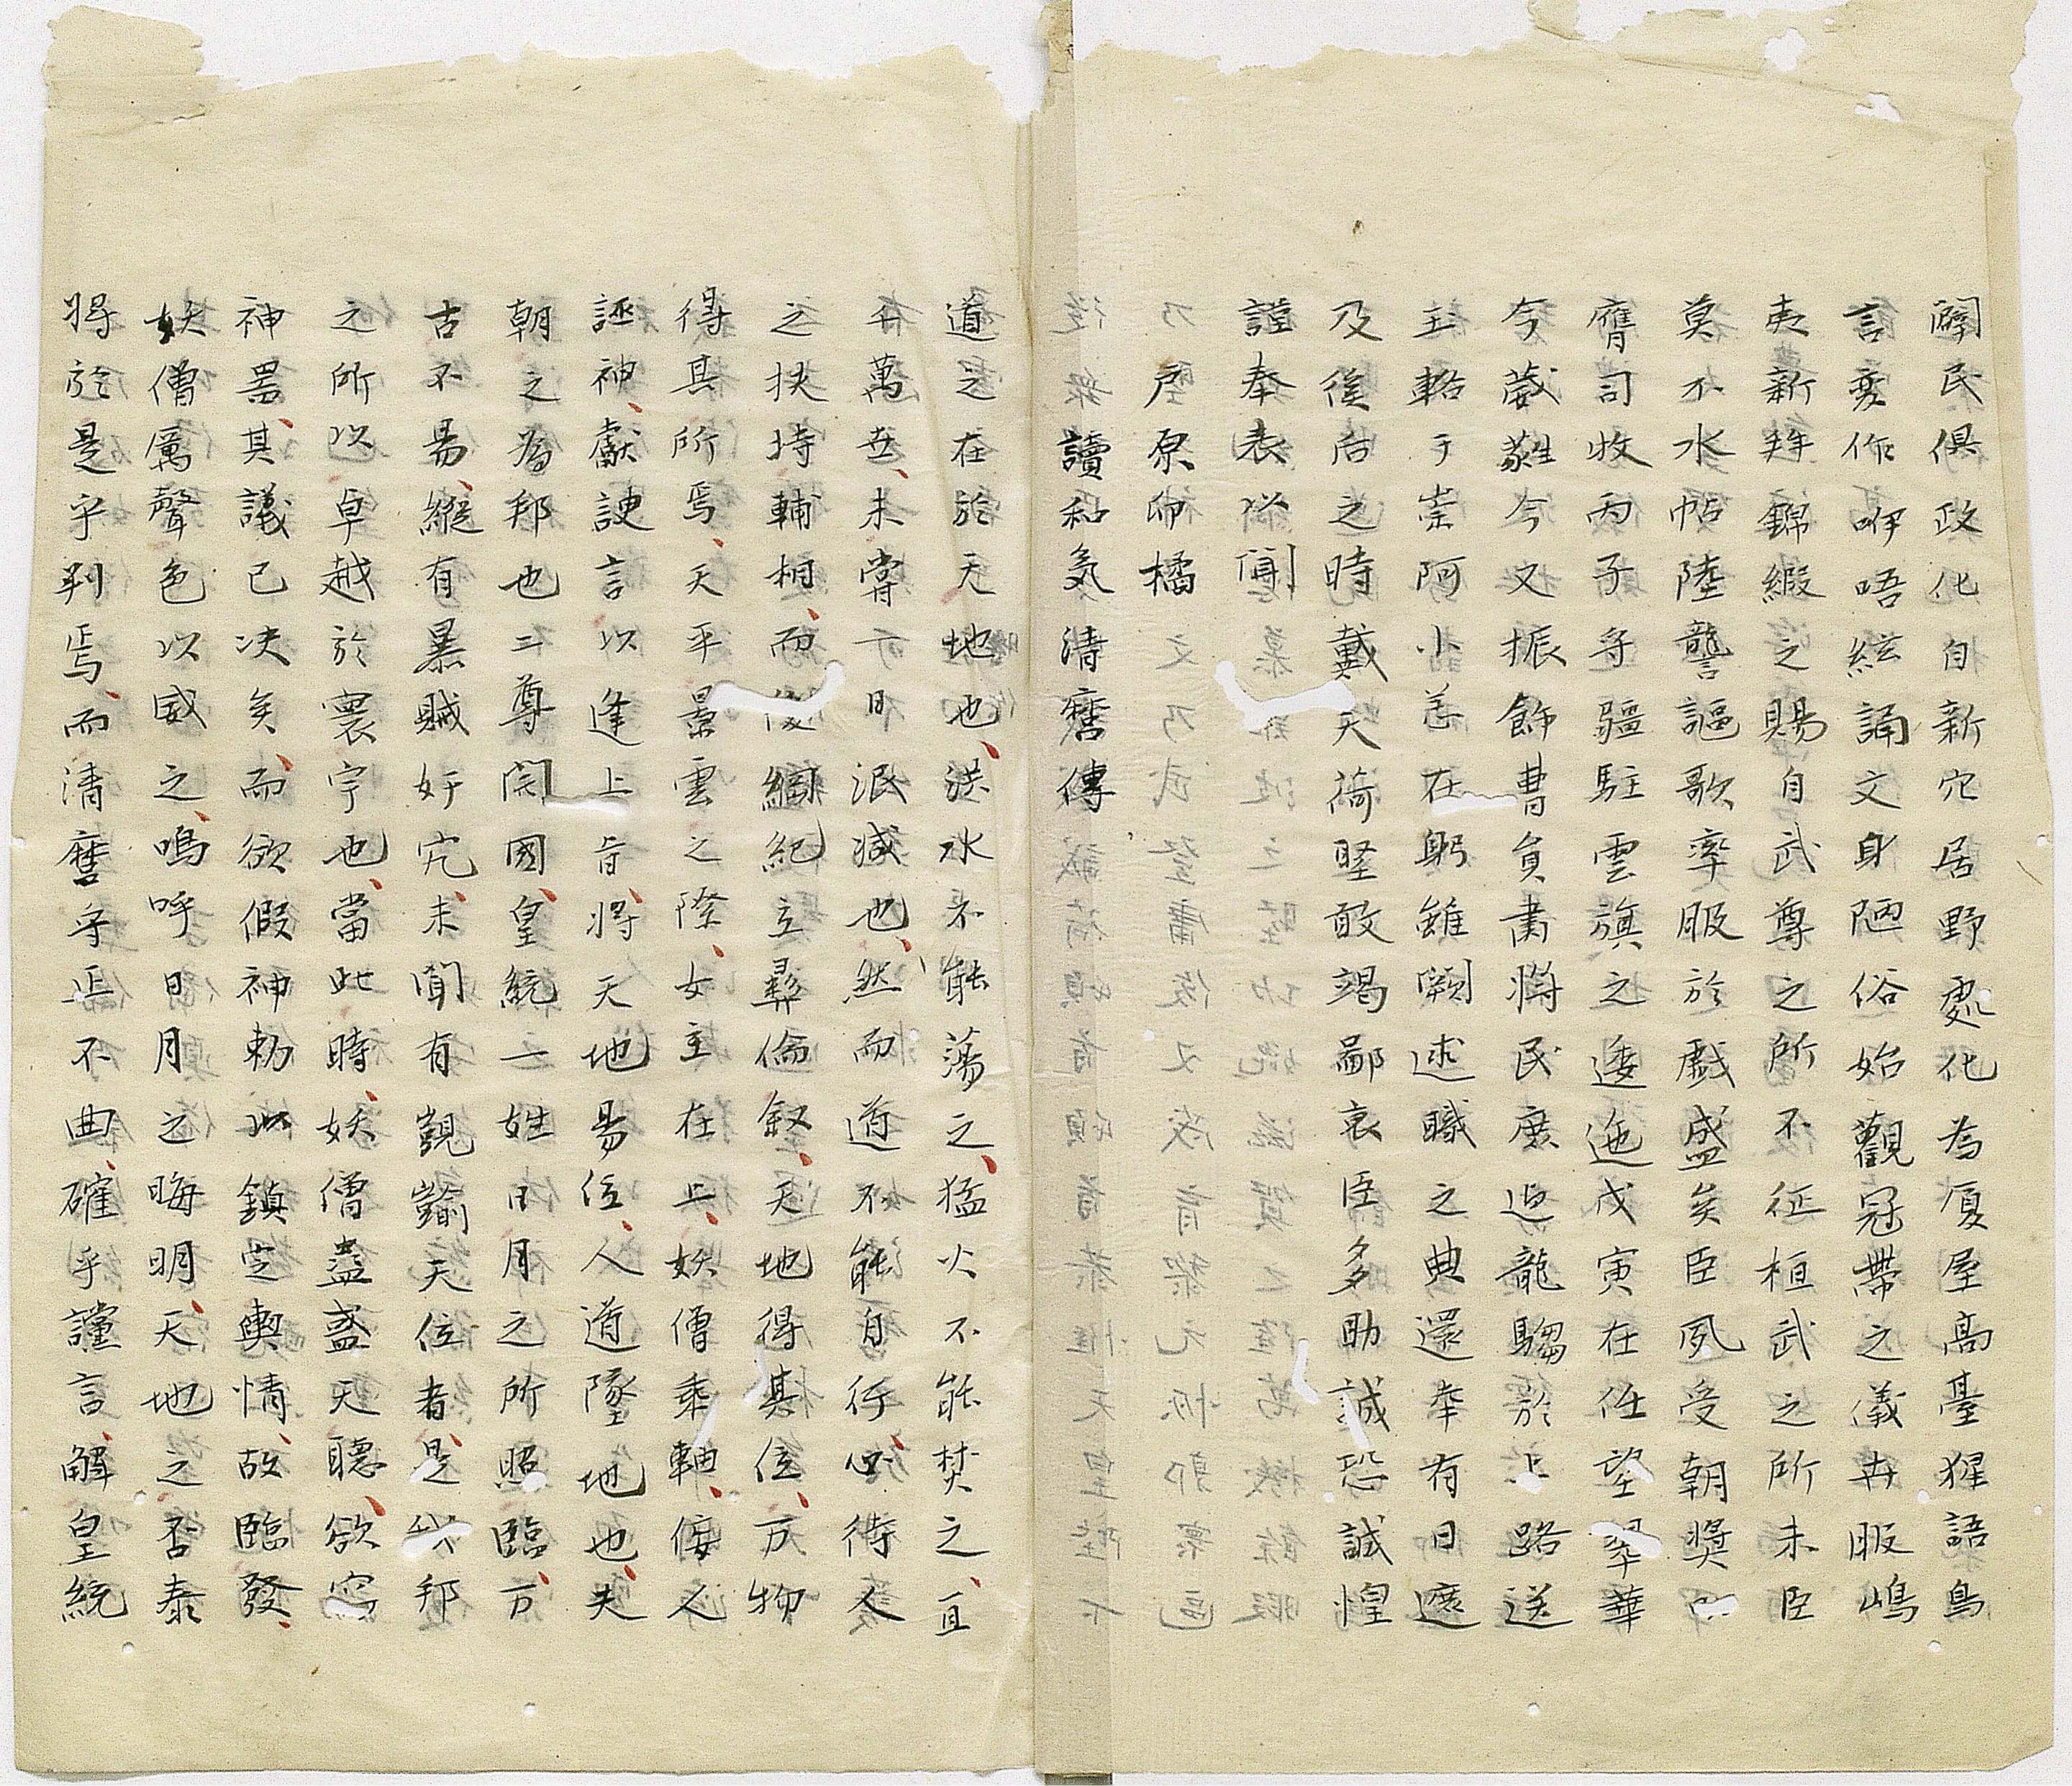 闢民俱政化自新穴居野處化為厦屋高臺猩語鳥
言変作咿唔絃誦文身陋俗始觀冠帶之儀卉服嶋
夷新拜錦緞之賜自武尊之所不征桓武之所未臣
莫不水帖陸讋謳歌率服於戲盛矣臣夙受朝奬
膺司牧丙子守疆駐雲旗之逶迤戊寅在任望翠華
今歳蕤今又振飾曹員肅將民庶迎龍騶於上路送
玉輅于崇阿小恙在躬雖闕述職之典還幸有日遮
及徯后之時戴天荷堅敢竭鄙衷臣多助誠恐誠惶
謹奉表以聞
戸原卯橘
讀和気清麿傳
道之在於天地也、洪水不能蕩之、猛火不能焚之、亘
千萬世、未嘗一日泯滅也、然而道不能自行、必待人
之扶持輔相、而後綱紀立彝倫叙、天地得其位、万物
得其所焉、天平景雲之際、女主在上、妖僧乘軸、佞人
誣神、獻諛言以逢上旨、将天地易位、人道墜地也、夫
朝之為邦也二尊開國、皇統一姓日月之所照臨、万
古不易、縱有暴賊奸宄、未聞有覬覦天位者、是我邦
之所以卓越於寰宇也、當此時、妖僧蠱惑天聽、欲窃
神噐、其議已决矣、而欲假神勅以鎮定輿情、故臨發、
妖僧厲聲色以威之、嗚呼日月之晦明、天地之否泰
将於是乎判焉、而清麿守正不曲、確乎讜言、解皇統